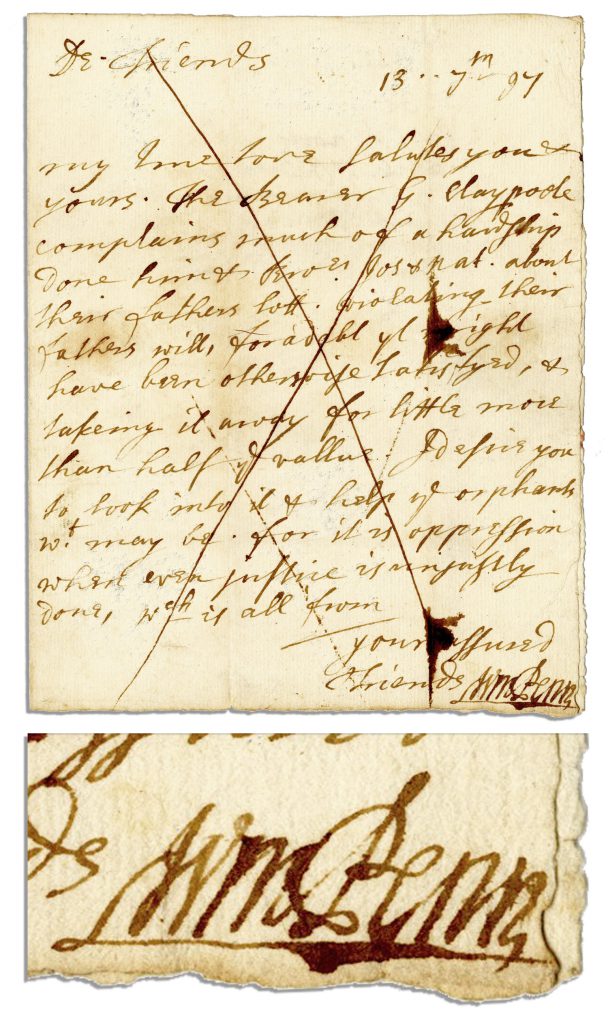 De. Friends
13.. 7m 97
my true love salutes you &
yours. The Bearer G. Claypoole
complains much of a hardship
done him & Bro.es Jos & Nat. about
their fathers lott. violating their
fathers will, for a debt yt might
have been otherwise satisfyed, &
takeing it away for little more
than half ye vallue. I desire you
to look into it & help ye orphants
wt. may be. for it is oppression
when even justice is unjustly
done, wch is all from
your assured
Friends Wm Penn
ds Wm Penn